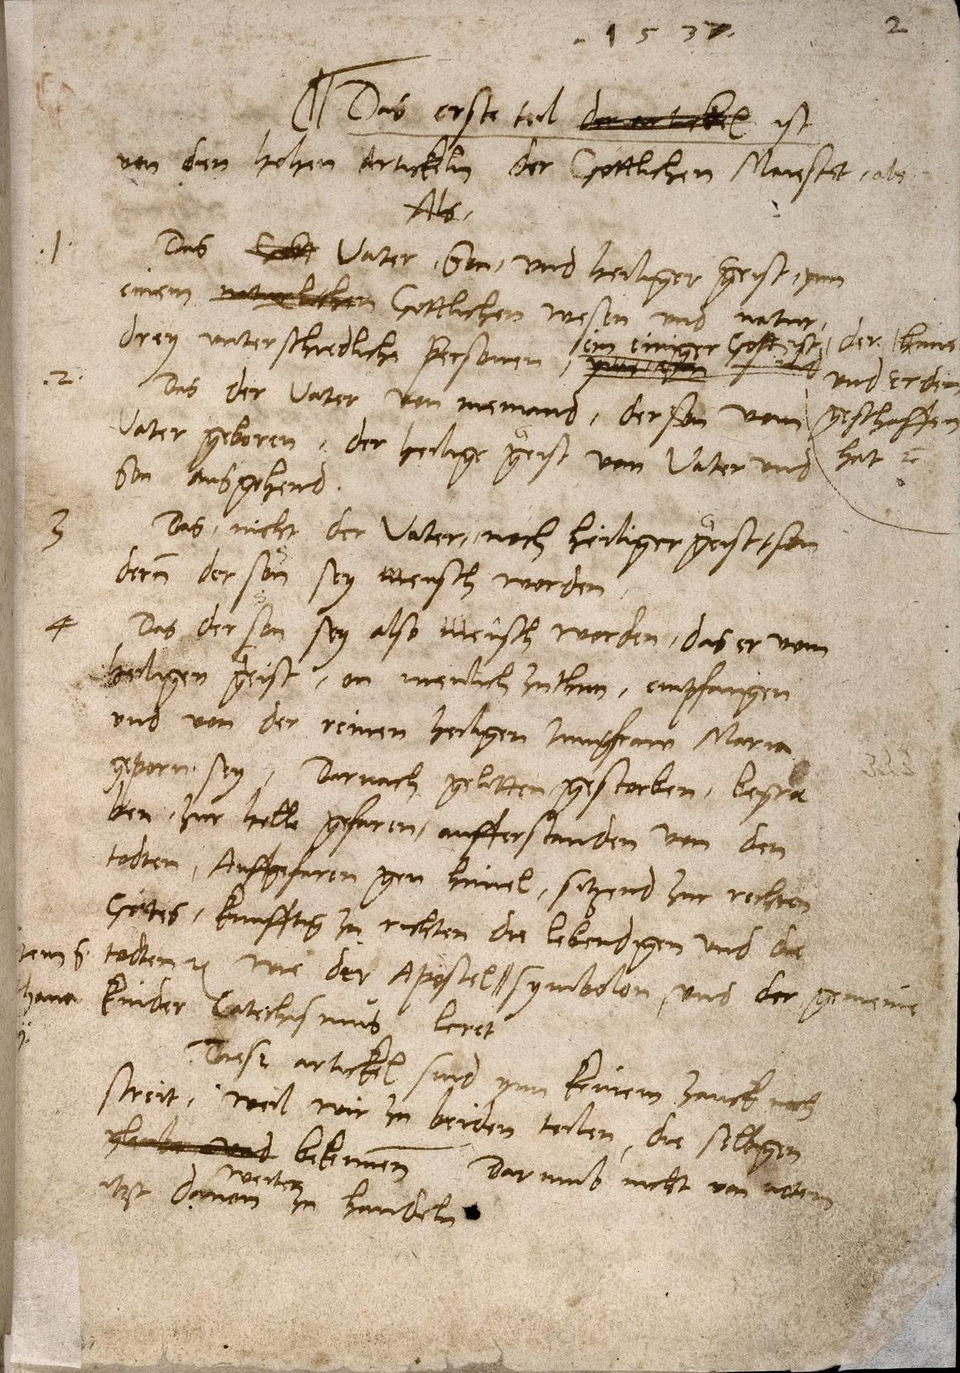 1537.
2
Das erste teil der artickel ist
von den hohen Artickeln der Gottlichen Maiestet, als
Als,
.1. Das Gott Vater, Son, und heiliger geist, ynn
einem naturlichen Gottlichen wesen und natur,
drey unterschiedliche Personen, ein einiger Gott ist, der himel
und Erden
geschaffen
hat ec
.2. Das der Vater von niemand, der son vom
Vater geboren, der heilige geist vom Vater und
Son ausgehend.
3 Das, nicht der Vater, noch heiliger geist, son
dern der son sey mensch worden,
4 Das der son sey also mensch worden, das er vom
heiligen geist, on menlich zuthun, empfangen
und von der reinen heiligen Jungfraw Maria
geporn sey, Darnach gelitten gestorben, begra
ben, zur helle gefaren, aufferstanden von den
todten, Auffgefaren gen himel, sitzend zur rechten
Gottes, kunfftig zu richten die lebendigen und die
todten ec wie der Apostel symbolon, und der gemeine
tem S.
thana
Kinder Catechismus leret
Diese artickel sind ynn keinem zanck noch
streit, weil wir zu beiden teilen, die selbigen
gleuben und bekennen Darumb nicht von noten
itzt davon weiter zu handeln